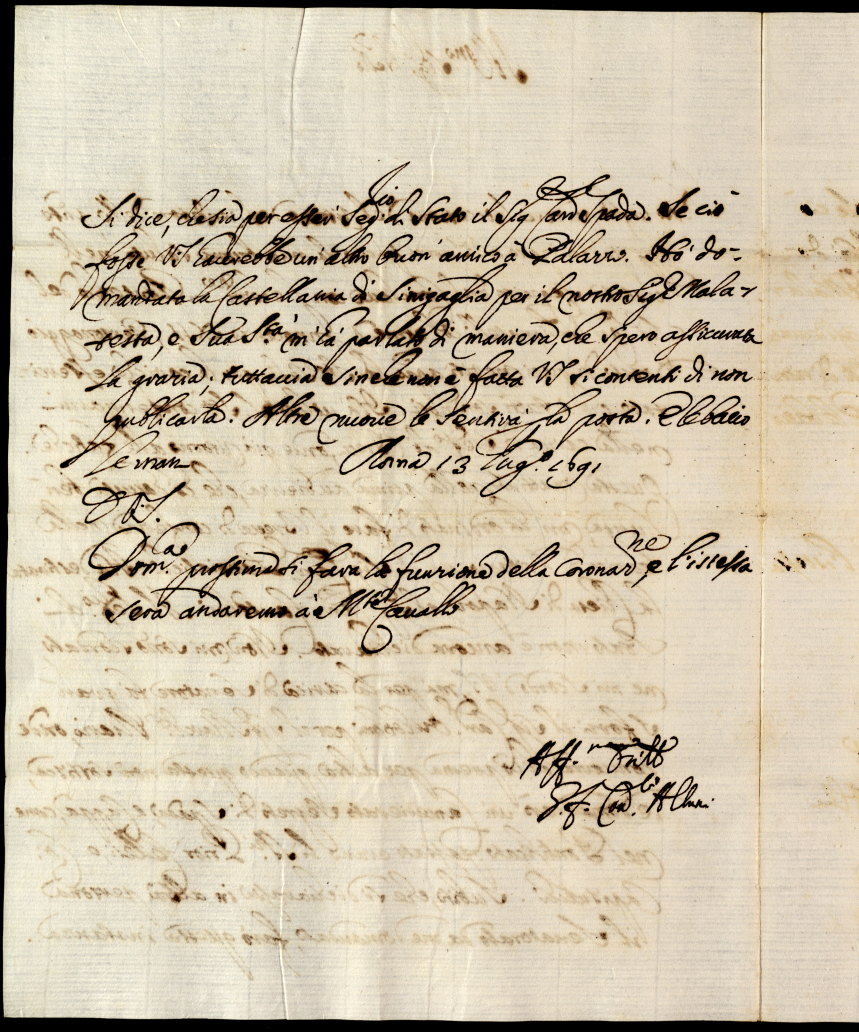 Si dice, che sia per esser Seg.rio di Stato il Sig. Card.le Spada. Se ciò
fosse VS haverebbe un' altro buon' amico à Palazzo. Hò do-
mandato la Castellania di Sinigaglia per il nostro Sig.r Mala-
testa, e Sua S.tà m' hà parlato di maniera, che spero assicurata
la grazia; tuttavia sin che non è fatta VS si contenti di non
publicarla. Altre nuove le sentirà p la posta. E le bacio
le man Roma 13 Lug.o 1691
D VS.
Dom.ca prossima si farà la funzione della Coronaz.ne, e l'istessa
sera andaremo à M.te Cavallo
Aff.mo
Card. Albani